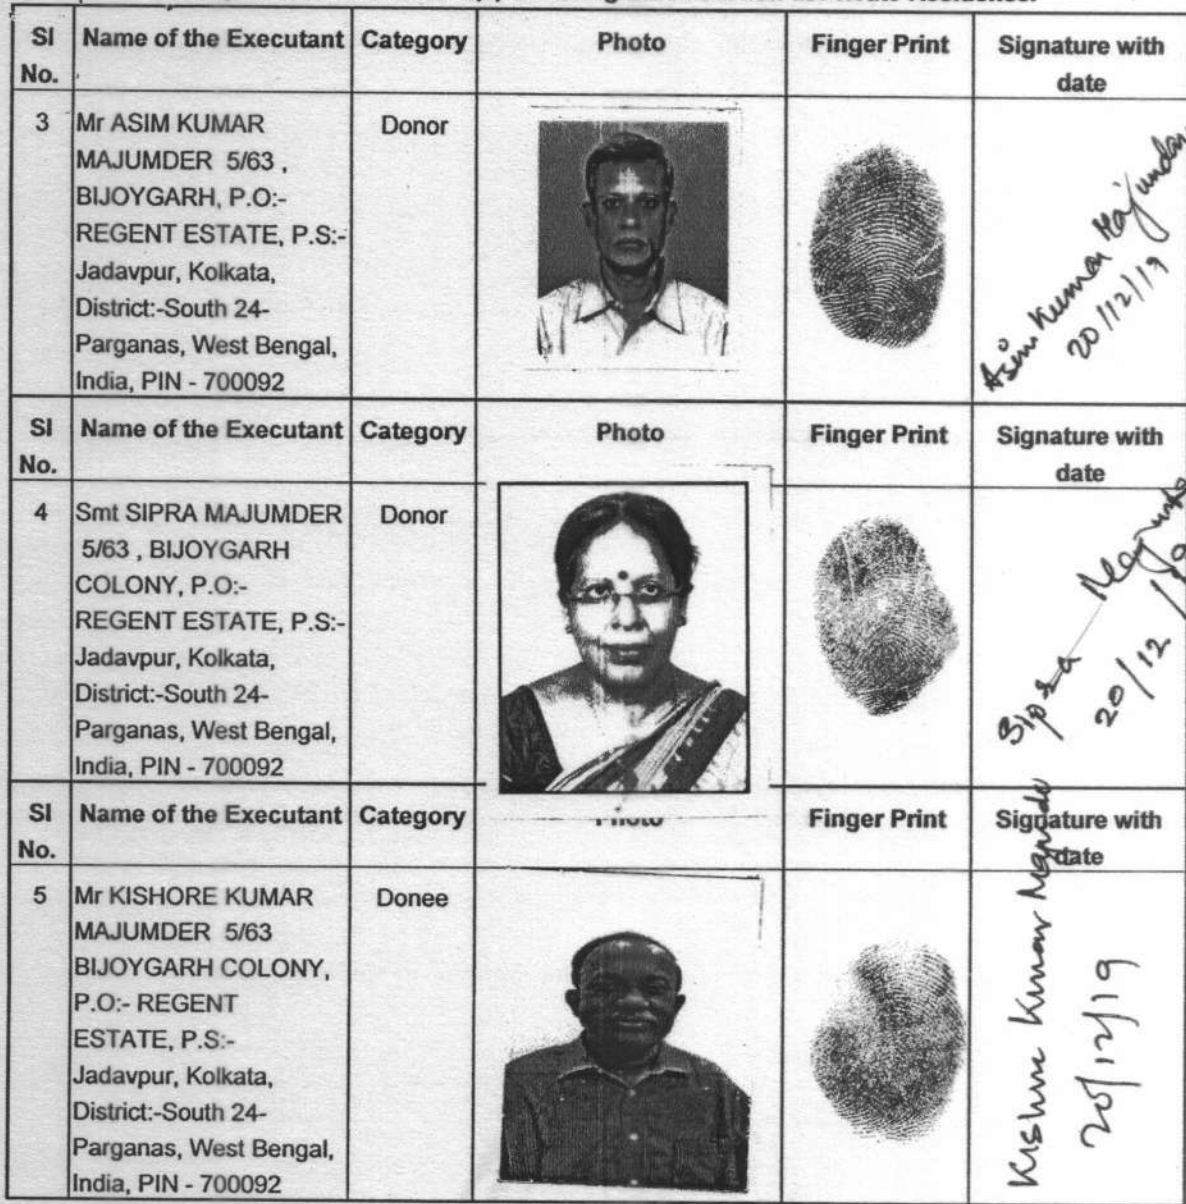 SI No. Name of the Executant Category Photo Finger Print Signature with date
3 Mr ASIM KUMAR Donor
MAJUMDER 5/63 ,
BIJOYGARH, P.O:-
REGENT ESTATE, P.S:-
Jadavpur, Kolkata,
District:-South 24-
Parganas, West Bengal,
India, PIN - 700092
Asim Kumar Majumdar
20/12/19
SI No. Name of the Executant Category Photo Finger Print Signature with date
4 Smt SIPRA MAJUMDER Donor
5/63 , BIJOYGARH
COLONY, P.O:-
REGENT ESTATE, P.S:-
Jadavpur, Kolkata,
District:-South 24-
Parganas, West Bengal,
India, PIN - 700092
Sipra
20/12/19
SI No. Name of the Executant Category Photo Finger Print Signature with date
5 Mr KISHORE KUMAR Donee
MAJUMDER 5/63
BIJOYGARH COLONY,
P.O:- REGENT
ESTATE, P.S:-
Jadavpur, Kolkata,
District:-South 24-
Parganas, West Bengal,
India, PIN - 700092
Kishore Kumar
20/12/19